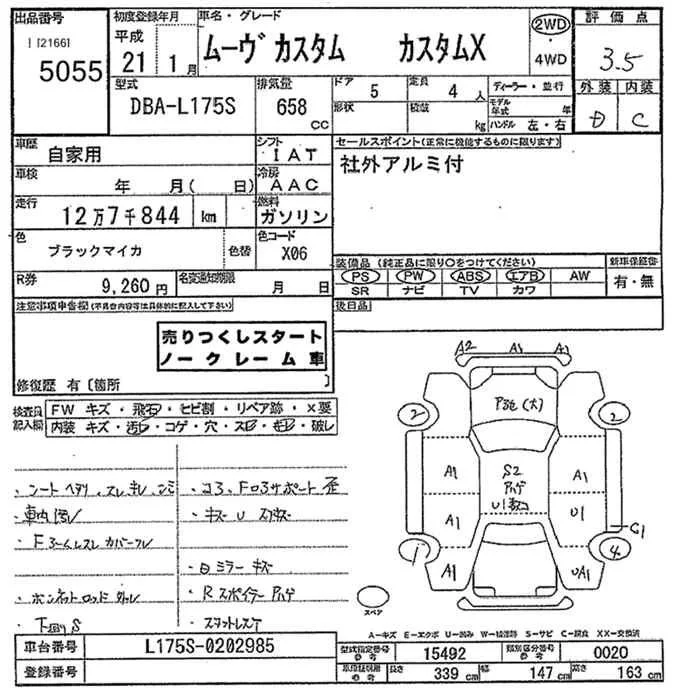 出品番号
5055
初度登録年月
平成
21 1月
車名・グレード
ムーヴカスタム カスタムX
2WD
・
4WD
評価点
3.5
外装 内装
D C
型式
DBA-L175S
排気量
658
CC
ドア 5
定員 4 人
形状
積載 kg
ディーラー・並行
モデル年式 年
ハンドル 左・右
車歴
自家用
シフト
IAT
車検
年 月( 日)
冷房
AAC
走行
12万7千844 km
燃料
ガソリン
色
ブラックマイカ
色替
色コード
X06
R券
9,260円
名変通知期限
月 日
セールスポイント(正常に機能するものに限ります)
社外アルミ付
装備品(純正品に限り○をつけてください)
PS PW ABS エアB AW
SR ナビ TV カワ
新車保証書
有・無
後日品
注意事項申告欄(不具合内容等は具体的に記入して下さい)
売りつくしスタート
ノークレーム車
修復歴 有〔箇所 〕
検査員
記入欄
FW キズ・飛石・ヒビ割・リペア跡・X要
内装 キズ・汚レ・コゲ・穴・スレ・キレ・破レ
・シートヘタリ、スレ キレ シミ
・車内汚レ
・ボンネットロッド外レ
・下廻りS
・コア、Fロアサポート歪
・キズ U スリキズ
・Rスポイラーハゲ
・スタットレスT
A2 A1 A1
2 2
A1 S2 A1
A1 U1
G1
1 4
A1 UA1
スペア
A-キズ E-エクボ U-凹み W-補修跡 S-サビ C-腐食 XX-交換済
車台番号 L175S-0202985
登録番号
型式指定番号 参考 15492
類別区分番号 参考 0020
車両証明欄 参考 長さ 339 cm 幅 147 cm 高さ 163 cm